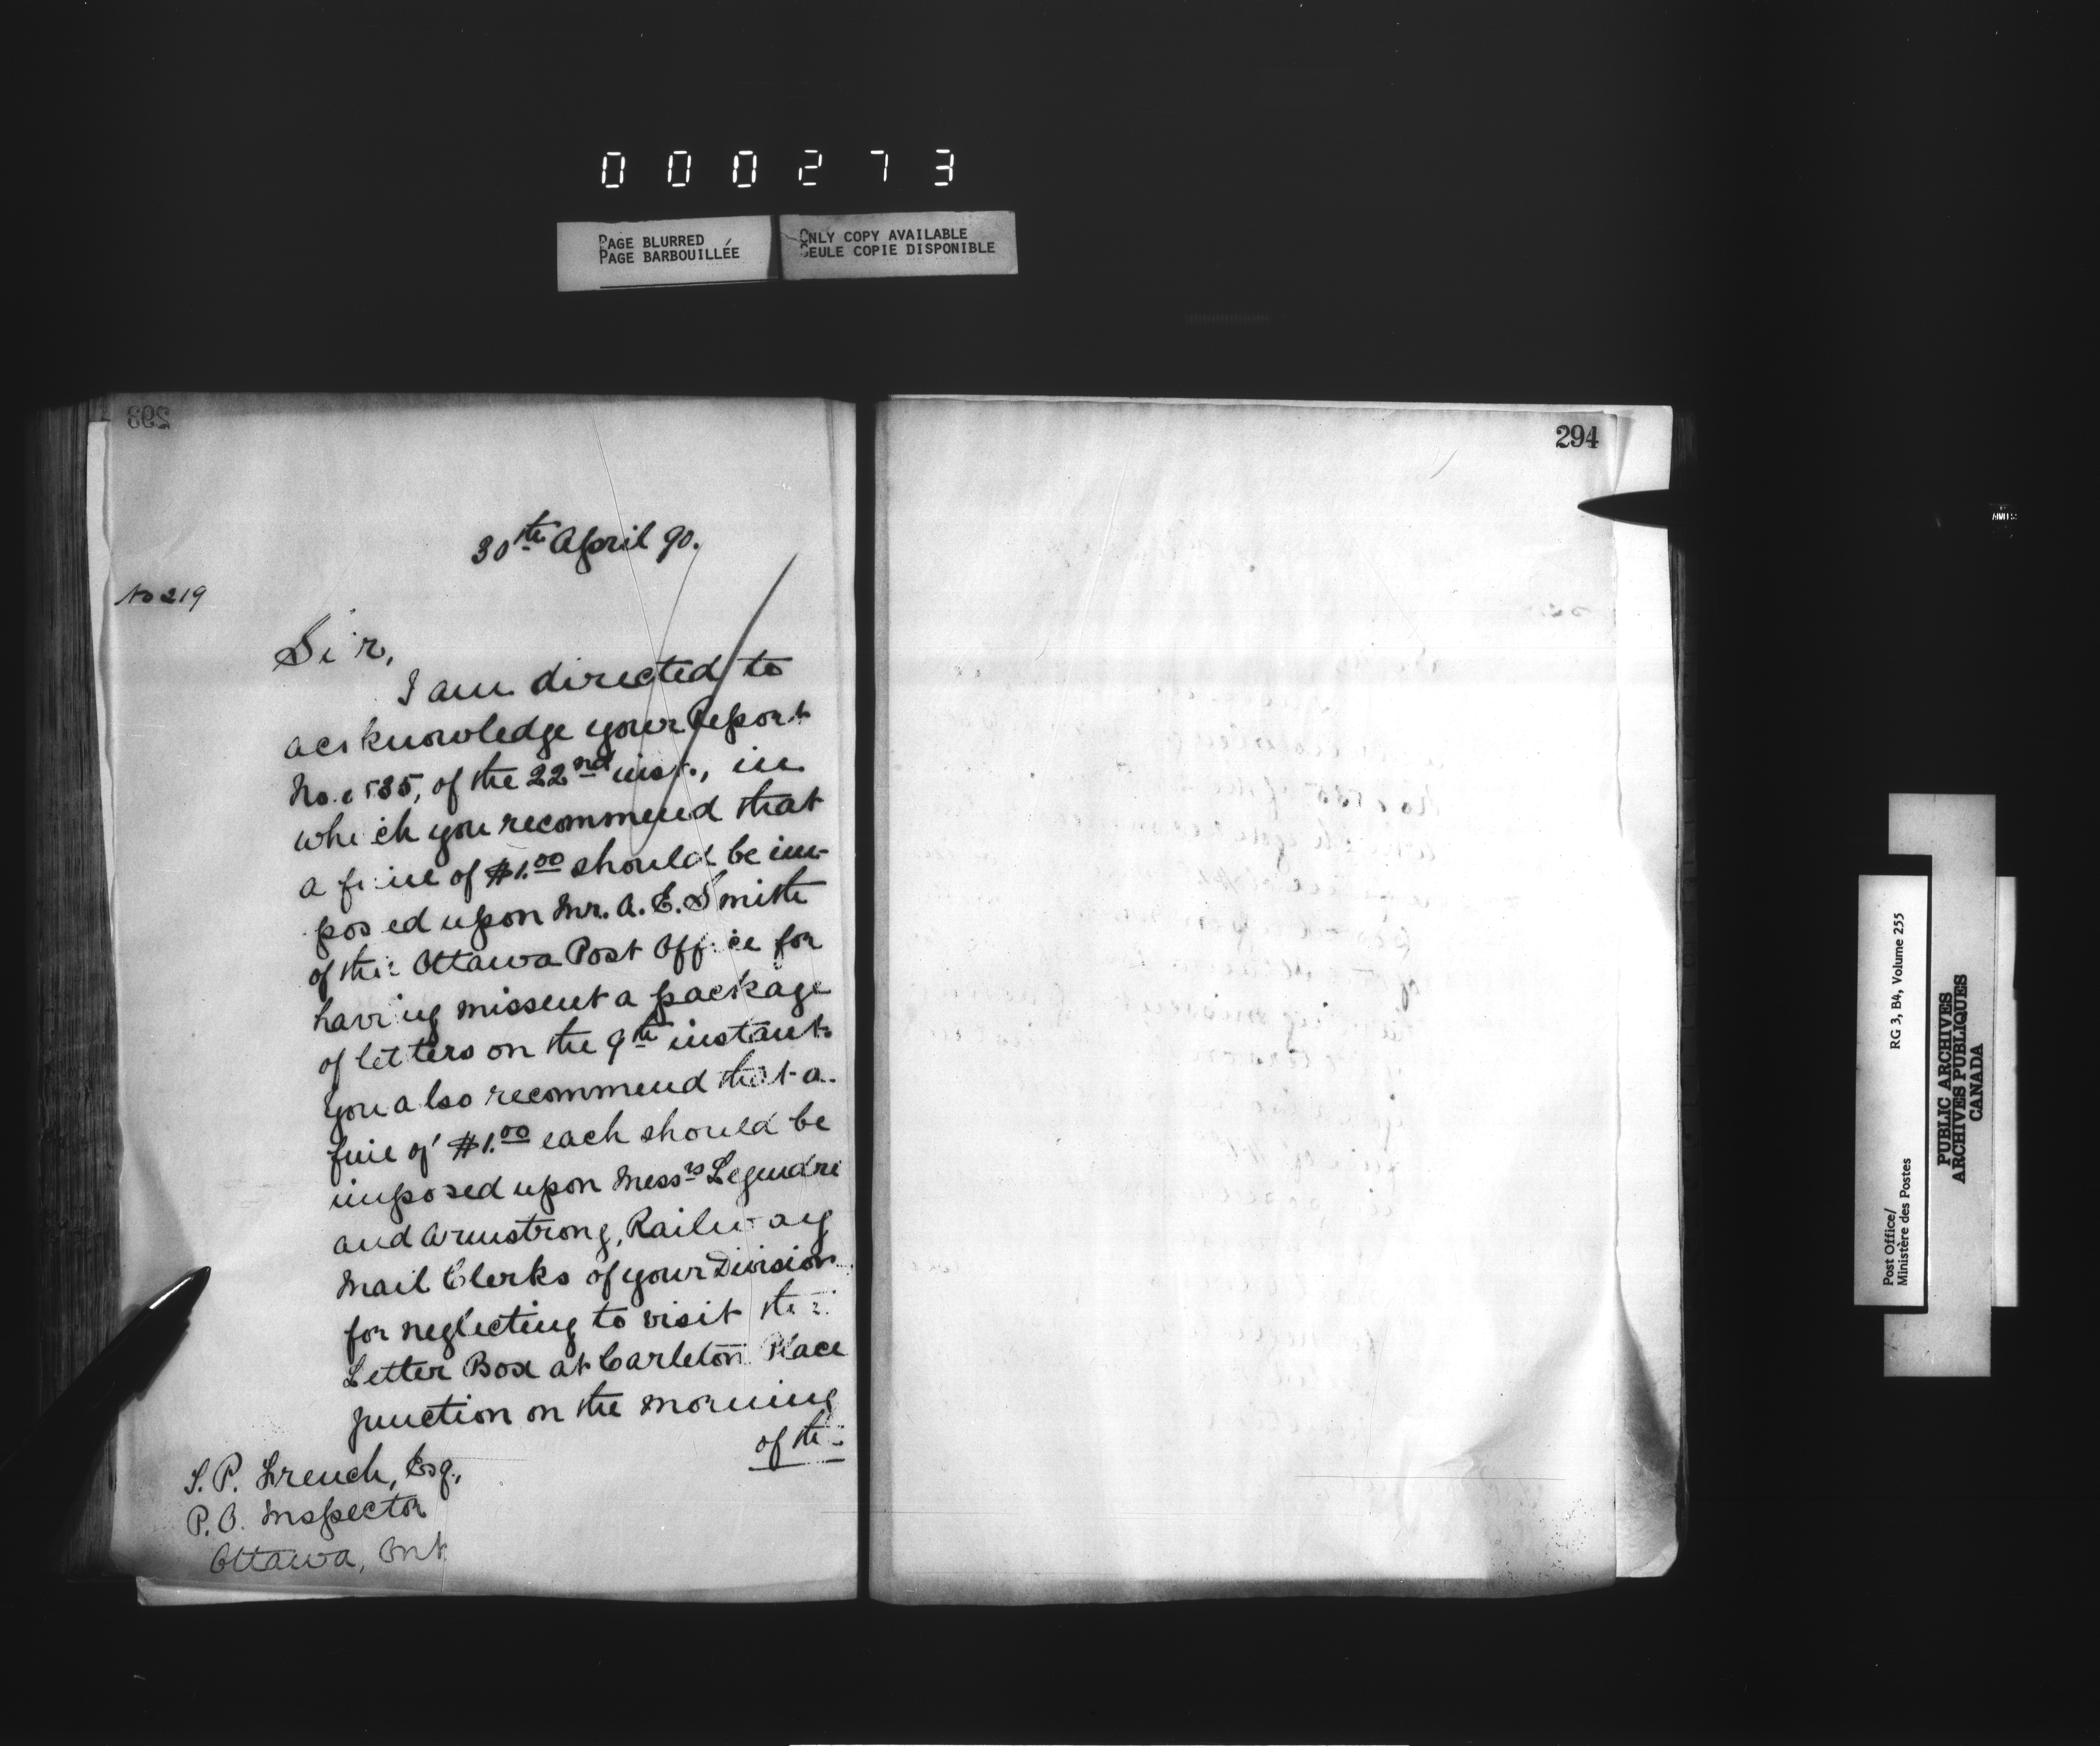 000273
PAGE BLURRED
PAGE BARBOUILLÉE
ONLY COPY AVAILABLE
SEULE COPIE DISPONIBLE
293
30th April 90.
No 219
Sir,
I am directed to
acknowledge your Report
No. 535, of the 22nd inst., in
which you recommend that
a fine of $1.00 should be im-
posed upon Mr. A. E. Smith
of the Ottawa Post Office for
having missent a package
of letters on the 9th instant.
You also recommend that a
fine of $1.00 each should be
imposed upon Messrs Legendre
and Armstrong, Railway
Mail Clerks of your Division
for neglecting to visit the
Letter Box at Carleton Place
Junction on the morning
of the
S. P. French, Esq.,
P.O. Inspector
Ottawa, Ont
294
Post Office/
Ministère des Postes
RG 3, B4, Volume 255
PUBLIC ARCHIVES
ARCHIVES PUBLIQUES
CANADA